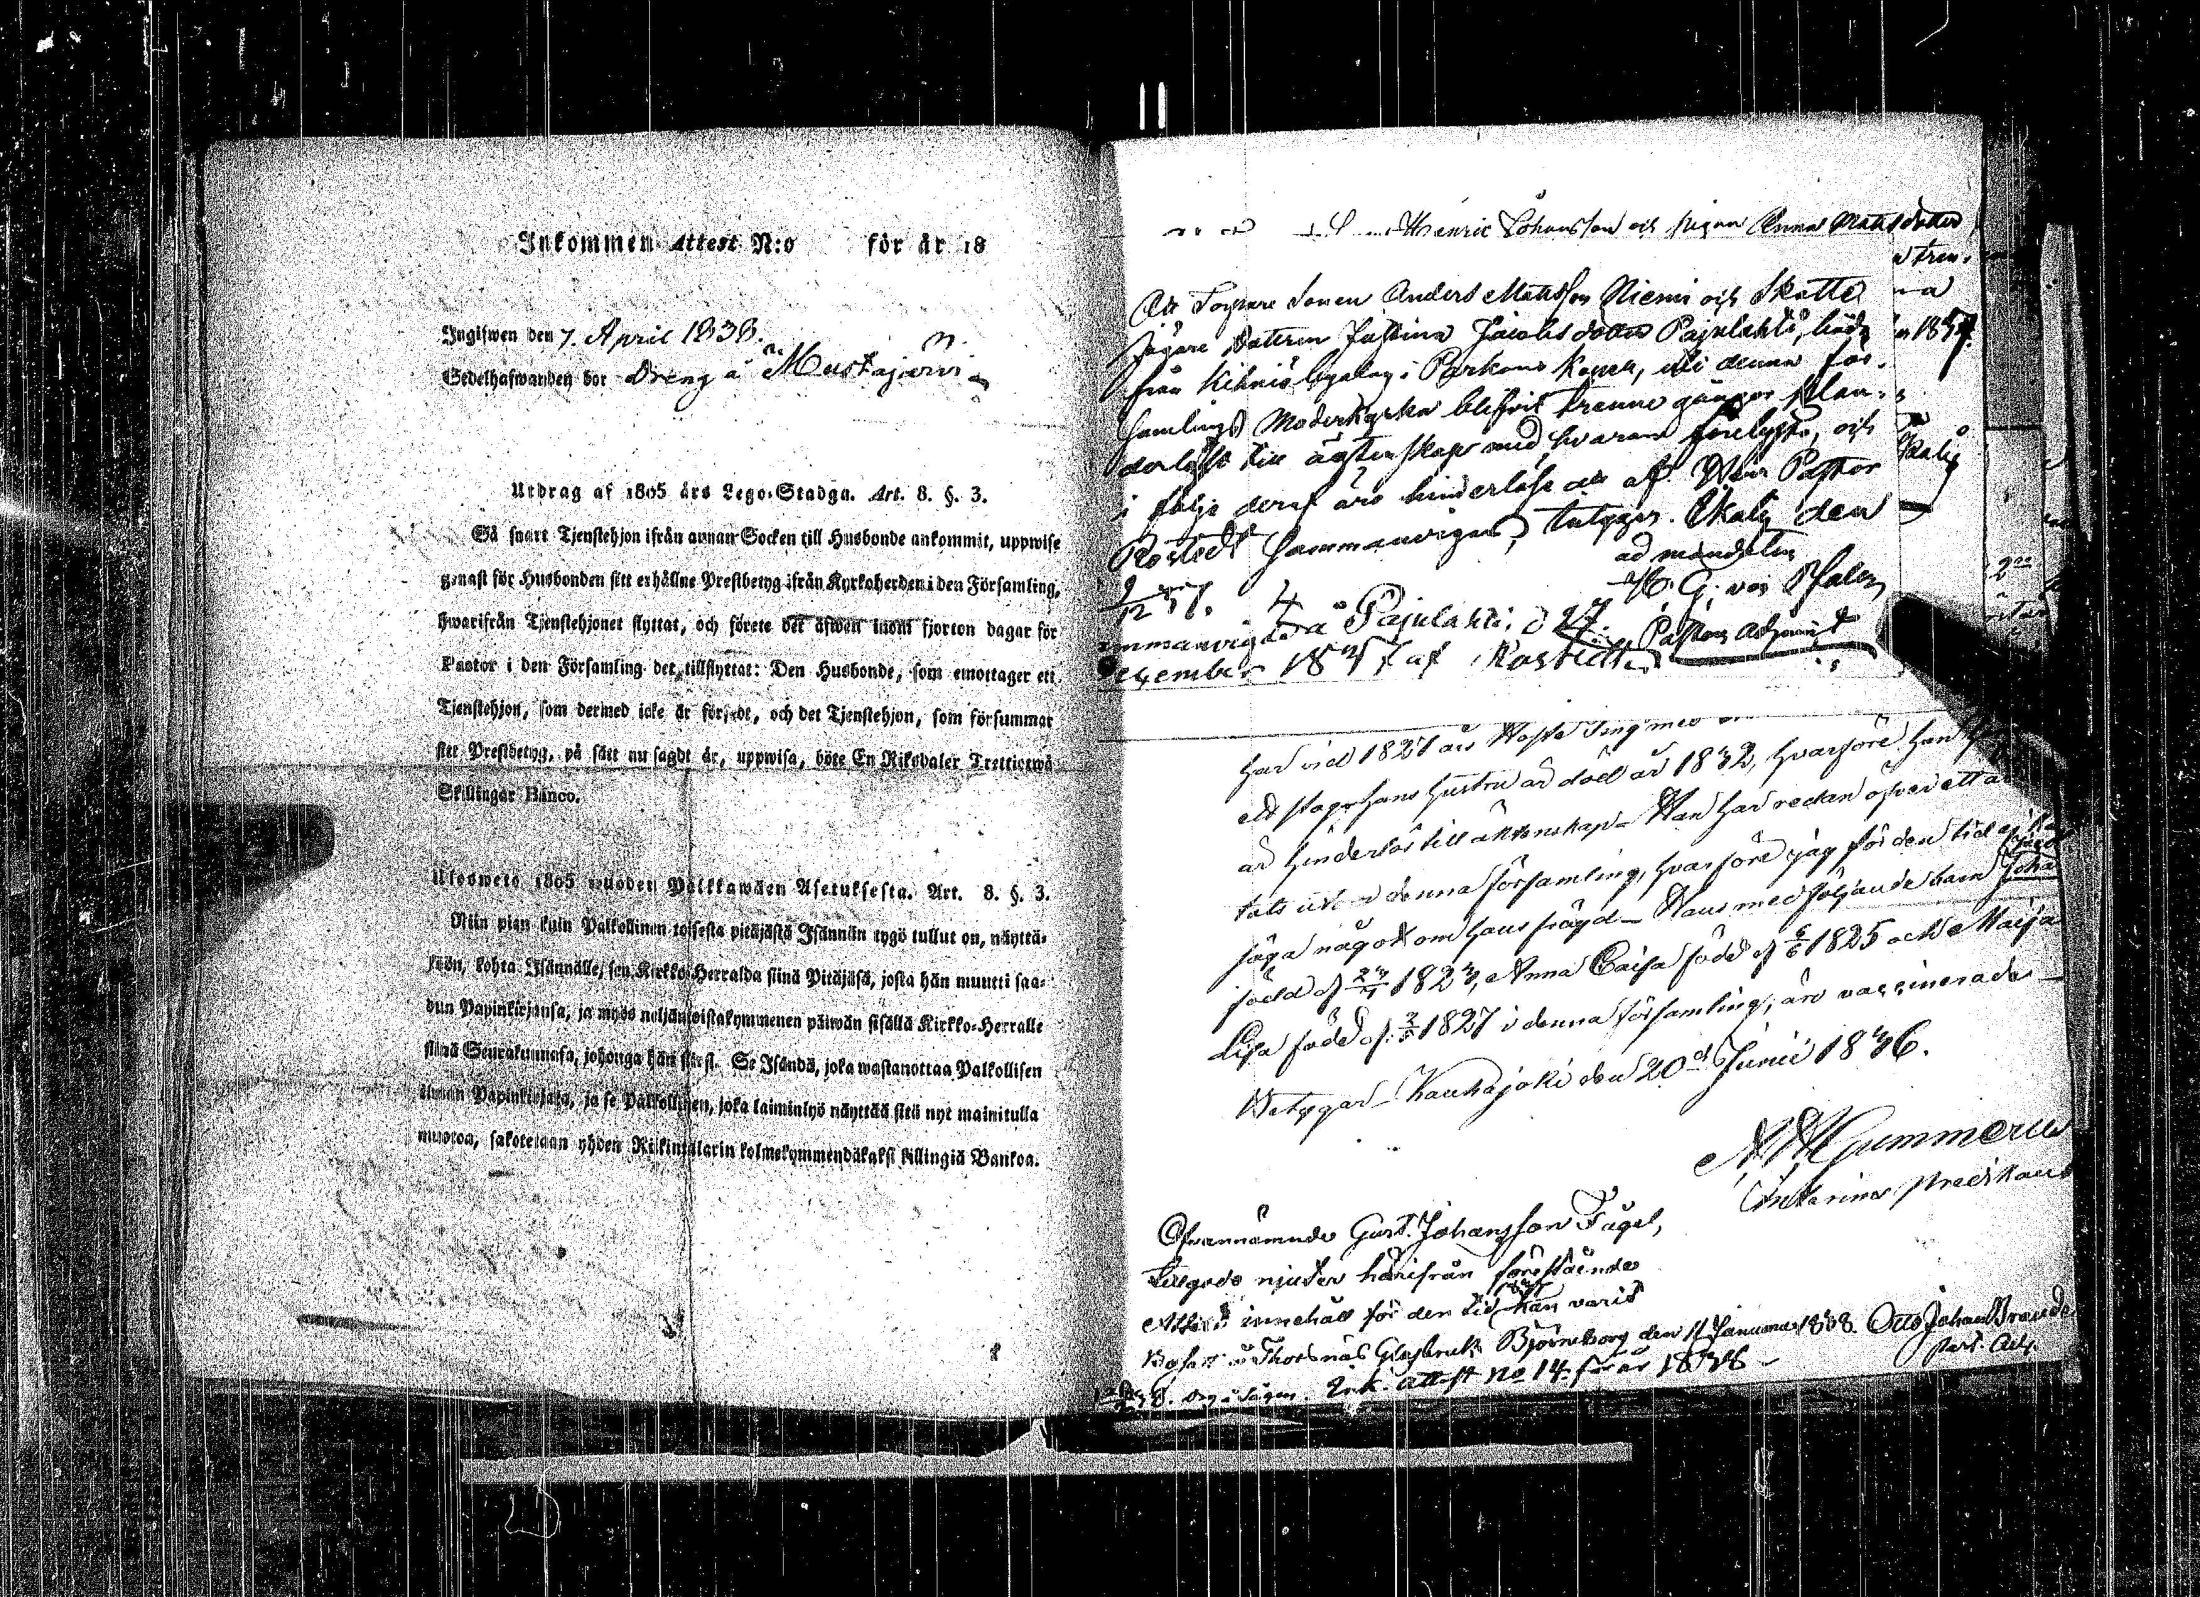 Inkommen Attest N:o för år 18
Ingifwen den 7. April 1838.
Sedelhafwanden bor Dreng å Mustajärvi
Utdrag af 1805 års Lego-Stadga. Art. 8. §. 3.
Så snart Tjenstehjon ifrån annan Socken till Husbonde ankommit, uppwise
genast för Husbonden sitt erhållne Prestbetyg ifrån Kyrkoherden i den Församling,
hwarifrån Tjenstehjonet flyttat, och förete det äfwen inom fjorton dagar för
Pastor i den Församling det tillflyttat: Den Husbonde, som emottager ett
Tjenstehjon, som dermed icke är försedt, och det Tjenstehjon, som försummar
sitt Prestbetyg, på sätt nu sagdt är, uppwisa, böte En Riksdaler Trettiotwå
Skillingar Banco.
Ulosweto 1805 wuoden Palkkawäen Asetuksesta. Art. 8. §. 3.
Niin pian kuin Palkollinen toisesta pitäjästä Isännän tygö tullut on, näyttä-
köön, kohta Isännälle, sen Kirkko-Herralda siinä Pitäjäsä, josta hän muutti saa-
dun Papinkirjansa, ja myös neljäntoistakymmenen päiwän sisällä Kirkko-Herralle
siinä Seurakunnasa, johonga hän siirsi. Se Isändä, joka wastanottaa Palkollisen
ilman Papinkirjata, ja se Palkollinen, joka laiminlyö näyttää sitä nyt mainitulla
muotoa, sakotetaan yhden Riikintalarin kolmekymmendäkaksi killingiä Bankoa.
Henric Johansson och pigan Anna Matsdotter
Att Torpare Sonen Anders Matsson Niemi och Skatte
Jägare Dottren Justina Jacobsdotter Pajulahti, både
från Kihniö byalag i Parkano Kapell, uti denna för-
samlings Moderkyrka blifvit trenne gånger Slan-
derlöst till äktenskap med hvarann förelyste, och
i följe deraf äro hinderlöse att af Herr Pastor
Rostedt sammanvigas, betygar. Ikalis den
9/12 37. ad mandatum
H. G. von Pfaler
Pastors Adjunct
mmanvigda å Pajulahti d 27.
ecember 1837 af Rostedt
n 1837.
Ikalis
har vid 1827 års Höste Ting med
eld stage hans hustru är död år 1832, hvarföre han
är hinderlös till äktenskap – Han har redan öfver ett år
tats ut i denna församling, hvarföre jag för den tid ej kan
säga något om hans frägd – Hans medföljande barn Joha
född d 23/4 1823, Anna Caisa född d 6/6 1825 och Maija
Lisa född d. 1827 i denna församling, äro vaccinerade –
Betygar – Kauhajoki den 20d Junii 1836.
Gummerus
Interims Predikant
Ofvannämnde Gust. Johansson Fågel,
tillgodo njuter härifrån förestående
Attests innehåll för den tid han varit
Bosatt å Thorsnäs Glasbruk. Björneborg den 11 Januarii 1838. Otto Johan Brande
Past. Adj.
Ink. attest No 14 för år 1838 –